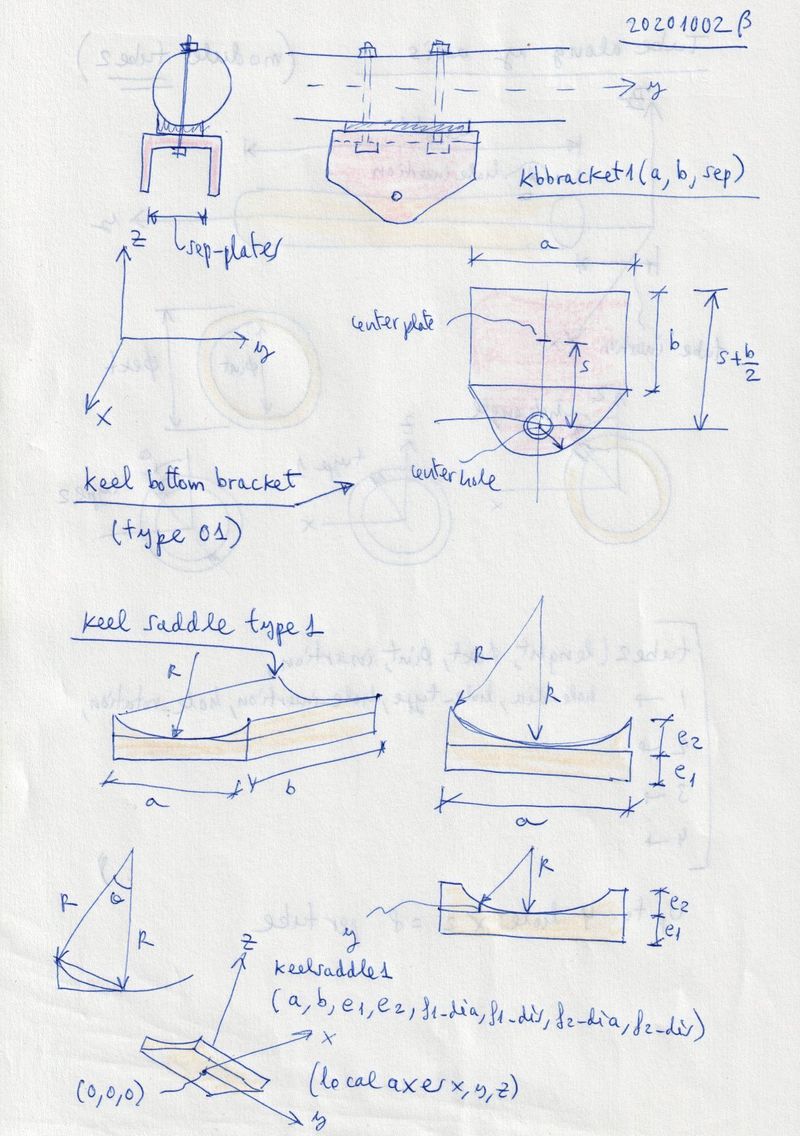 20201002 β
y
kbbracket1(a, b, sep)
sep-plates
z
y
x
a
center plate
s
b
s+b/2
center hole
keel bottom bracket
(type 01)
keel saddle type 1
R
a
b
R
R
e2
e1
a
R
θ
R
R
e2
e1
y
z
keelsaddle1
(a, b, e1, e2, f1-dia, f1-dis, f2-dia, f2-dis)
x
(0,0,0)
(local axes x, y, z)
y